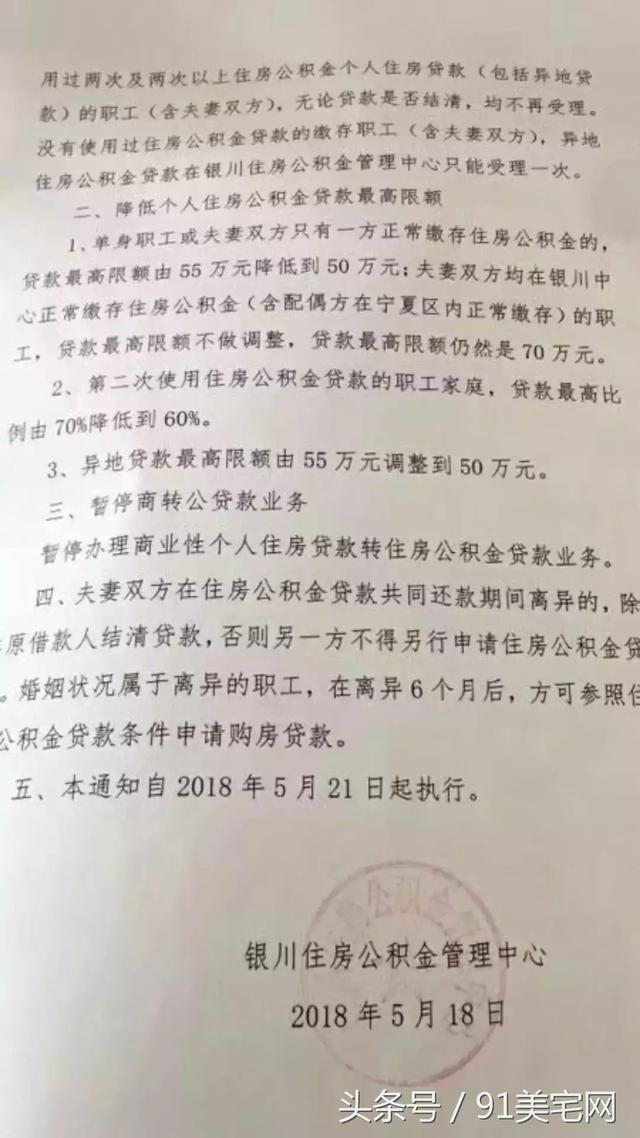 用过两次及两次以上住房公积金个人住房贷款（包括异地贷
款）的职工（含夫妻双方），无论贷款是否结清，均不再受理。
没有使用过住房公积金贷款的缴存职工（含夫妻双方），异地
住房公积金贷款在银川住房公积金管理中心只能受理一次。
二、降低个人住房公积金贷款最高限额
1、单身职工或夫妻双方只有一方正常缴存住房公积金的，
贷款最高限额由 55 万元降低到 50 万元；夫妻双方均在银川中
心正常缴存住房公积金（含配偶方在宁夏区内正常缴存）的职
工，贷款最高限额不做调整，贷款最高限额仍然是 70 万元。
2、第二次使用住房公积金贷款的职工家庭，贷款最高比
例由 70%降低到 60%。
3、异地贷款最高限额由 55 万元调整到 50 万元。
三、暂停商转公贷款业务
暂停办理商业性个人住房贷款转住房公积金贷款业务。
四、夫妻双方在住房公积金贷款共同还款期间离异的，除
原借款人结清贷款，否则另一方不得另行申请住房公积金贷
。婚姻状况属于离异的职工，在离异 6 个月后，方可参照住
公积金贷款条件申请购房贷款。
五、本通知自 2018 年 5 月 21 日起执行。
银川住房公积金管理中心
2018 年 5 月 18 日
头条号 / 91美宅网